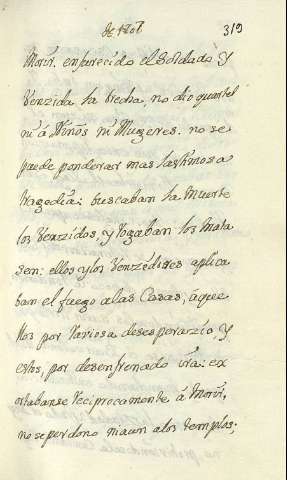 de 1707.
319
Morir. enfurecido el Soldado y
Venzida la brecha, no dio quartel
ni á Niños ni Mugeres. no se
puede ponderar mas lastimosa
tragedia: buscaban la Muerte
los Venzidos, y rogaban los mata
sen: ellos y los Venzedores aplica
ban el fuego a las Casas, aque
llos por rabiosa desesperazio y
estos, por desenfrenado ira: ex
ortabanse reciprocamente á Morir,
no se perdono ni aun a los templos;